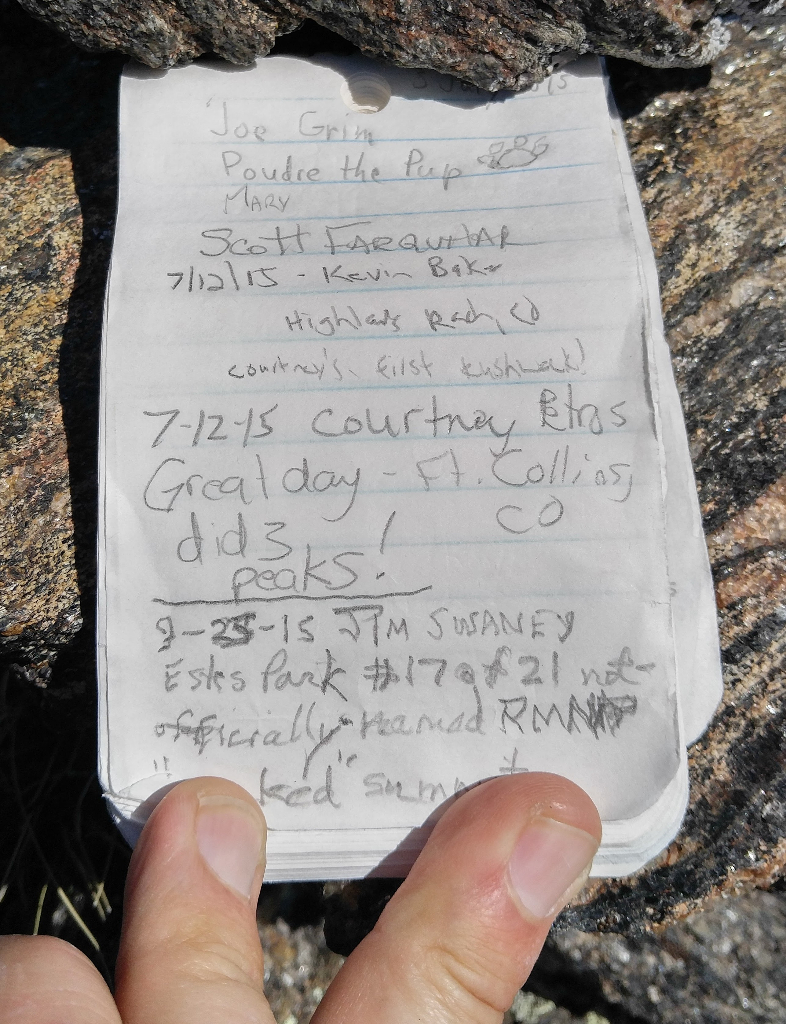 Joe Grim
Poudre the Pup
MARY
SCOTT FARQUHAR
7/12/15 - Kevin Baker
Highlands Ranch, CO
Courtney's first bushwack!
7-12-15 Courtney
Great day - Ft. Collins,
CO
did 3
peaks!
-15 JIM SWANEY
Estes Park #17 of 21 not-
officially-named RMNP
" ked" summit